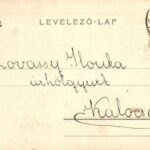 LEVELEZŐ-LAP
Lovassy Ilonka
úrhölgynek
Kalocsa